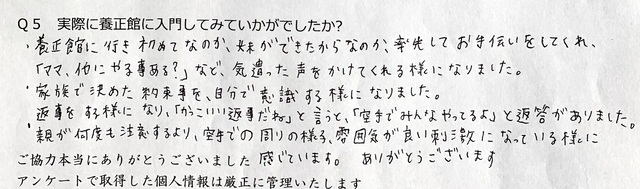 Q5 実際に養正館に入門してみていかがでしたか?
・養正館に行き初めてなのか、妹ができたからなのか、率先してお手伝いをしてくれ、
「ママ、他にやる事ある?」など、気遣った声をかけてくれる様になりました。
・家族で決めた約束事を、自分で意識する様になりました。
返事をする様になり、「かっこいい返事だね」と言うと、「空手でみんなやってるよ」と返答がありました。
・親が何度も注意するより、空手での周りの様子、雰囲気が良い刺激になっている様に
ご協力本当にありがとうございました 感じています。 ありがとうございます
アンケートで取得した個人情報は厳正に管理いたします